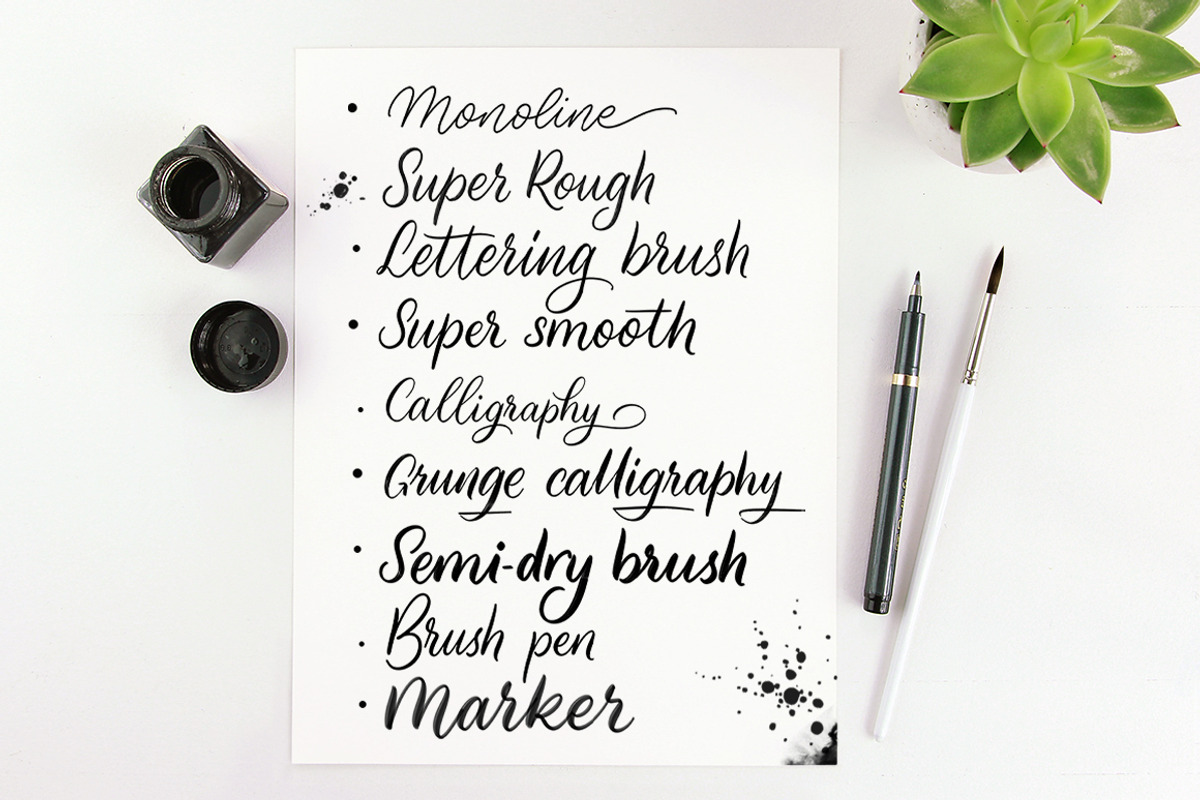 • Monoline
Super Rough
• Lettering brush
• Super smooth
• Calligraphy
• Grunge calligraphy
• Semi-dry brush
• Brush pen
• Marker